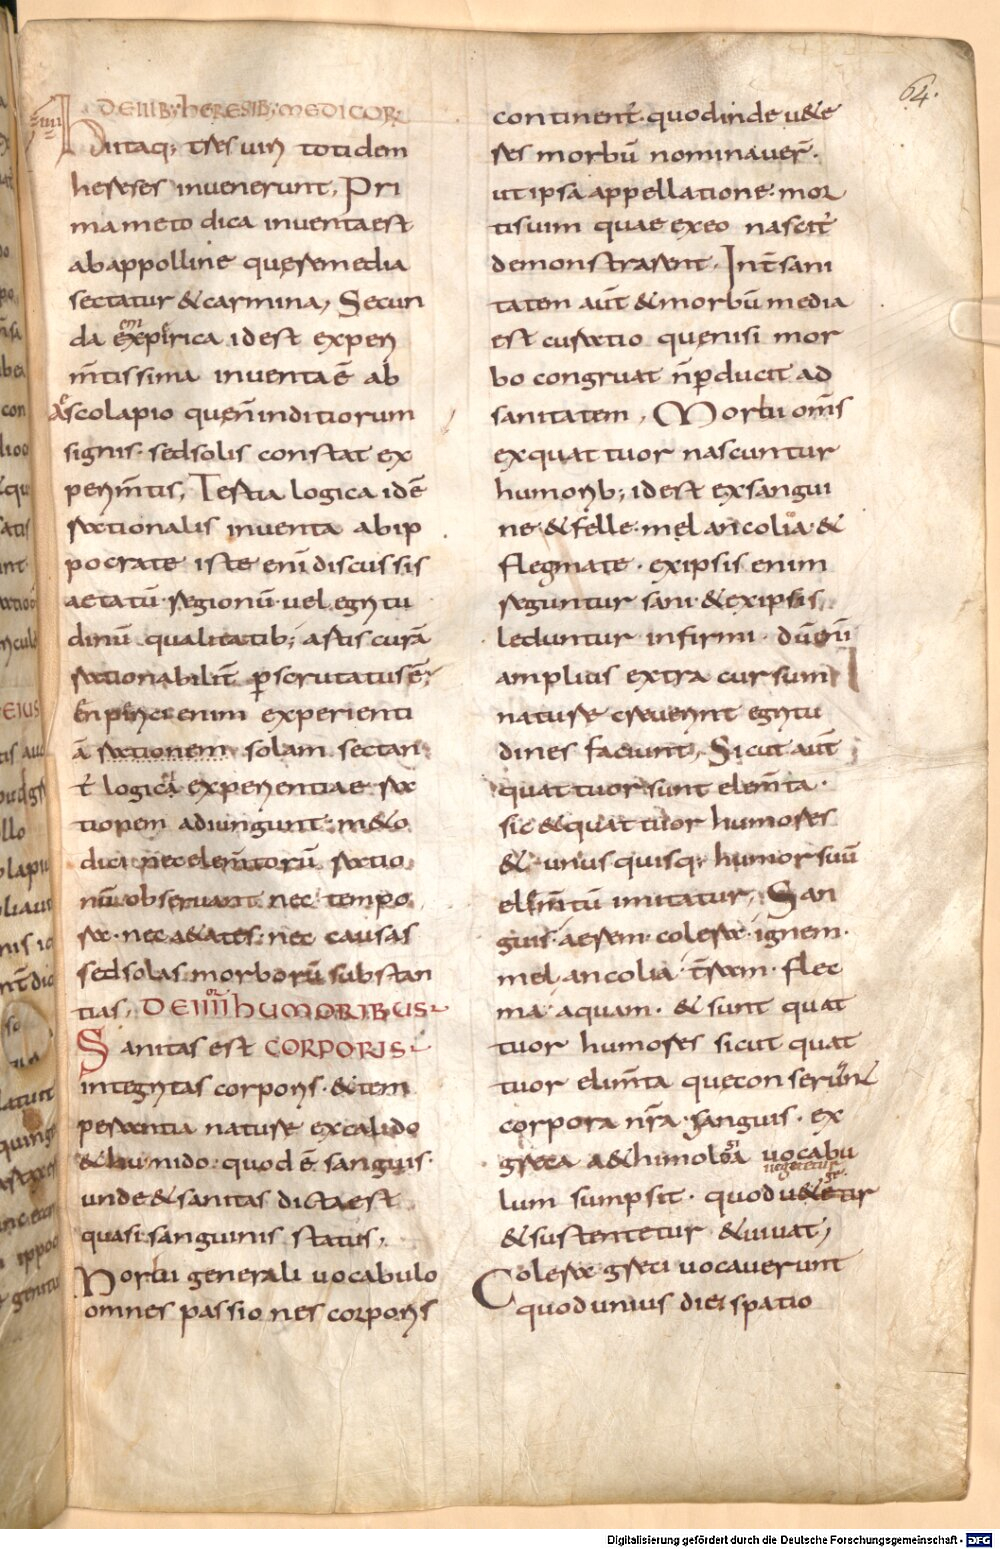 64.
IIII
DE IIIB; hERESIB; MEDICOR̄
hii itaq; tres uiri totidem
hereses invenerunt, Pri
ma metodica inventa est
ab appolline quę remedia
sectatur & carmina, Secun
da emperica id est experi
m̄tissima inventa ē ab
aescolapio que n̄ inditiorum
signis sed solis constat ex
perim̄tis, Tertia logica id ē
rationalis inventa ab ip
pocrate iste eni discussis
aetatū regionū uel egritu
dinū qualitatib; artis curā
rationabilit̄ p̄scrutatus ē,
Enperici enim experienti
ā rationem solam sectan
t̄ logica experientiae ra
tionem adiungunt, m&o
dici nec elem̄torū ratio
nū observant nec tempo
ra nec a&ates nec causas
sed solas morborū substan
tias, DE IIII hUMORIBUS
Sanitas est CORPORIS
integritas corporis & tem
perantia nature ex calido
& humido quod ē sanguis
unde & sanitas dicta est
quasi sanguinis status,
Morbi generali vocabulo
omnes passiones corporis
continent̄ quod inde u&e
res morbū nominaver̄
ut ipsa appellatione mor
tis vim quae ex eo nascit̄
demonstrarent, Int̄ sani
tatem aut̄ & morbū media
est curatio quę nisi mor
bo congruat n̄ p̄ducit ad
sanitatem, Morbi om̄s
ex quattuor nascuntur
humorib; id est ex sangui
ne & felle mel ancolia &
flegmate ex ipsis enim
reguntur sani & ex ipsis
leduntur infirmi dū eni
amplius extra cursum
nature creverint egritu
dines faciunt, Sicut aut̄
quattuor sunt elem̄ta
sic & quattuor humores
& unus quisq; humor suū
elem̄tū imitatur, San
guis aerem colera ignem
mel ancolia t̄ram flec
ma aquam & sunt quat
tuor humores sicut quat
tuor elim̄ta quę conservant
corpora nr̄a sanguis ex
greca a&himologia vocabu
lum sumpsit quod vegetetur
& sustentetur & vivat,
Colera greci vocaverunt
quod unius diei spatio
Digitalisierung gefördert durch die Deutsche Forschungsgemeinschaft - DFG